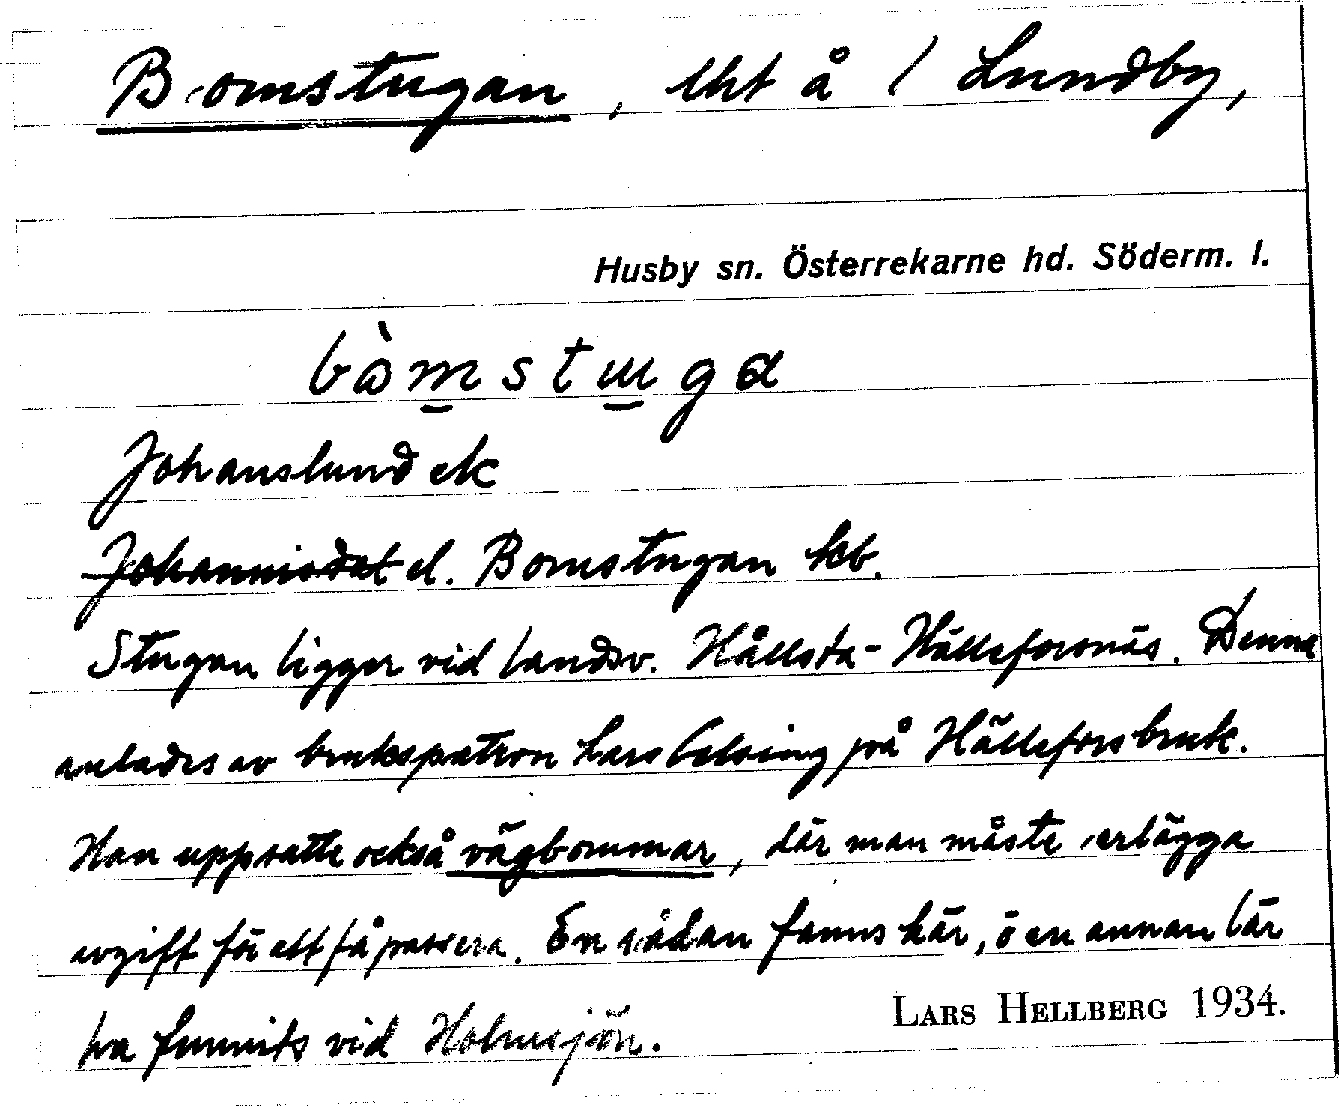 Bomstugan, lht å / Lundby,
Husby sn. Österrekarne hd. Söderm. l.
bòmstuga
Johanslund ek
Johannisdal el. Bomstugan kb.
Stugan ligger vid landsv. Hållsta - Hälleforsnäs. Denna
anlades av brukspatron Lars Celsing på Hällefors bruk.
Han uppsatte också vägbommar, där man måste erlägga
avgift för att få passera. En sådan fanns här, o en annan lär
ha funnits vid Holmsjön.
LARS HELLBERG 1934.